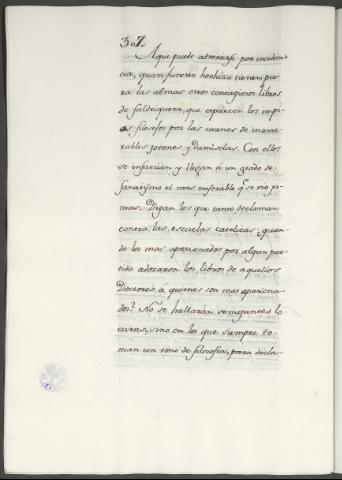 37.
Aqui puede advertirse por inciden-
cia, quan funesto hechizo tienen pa
ra las almas estos contagiosos libros
de faldriquera, que esparcen los impi
os filosofos por las manos de inume
rables jovenes y damiselas. Con ellos
se infatúan y llegan á un grado de
fanatismo el mas miserable q.e se vio ja-
mas. Digan los que tanto declaman
contra las escuelas catolicas ¿quan
do los mas apasionados por algun par
tido adoraron los libros de aquellos
Doctores á quienes son mas apasiona-
dos? No se hallarán semejantes lo
curas, sino en los que siempre to-
man un tono de filosofia, para decla-